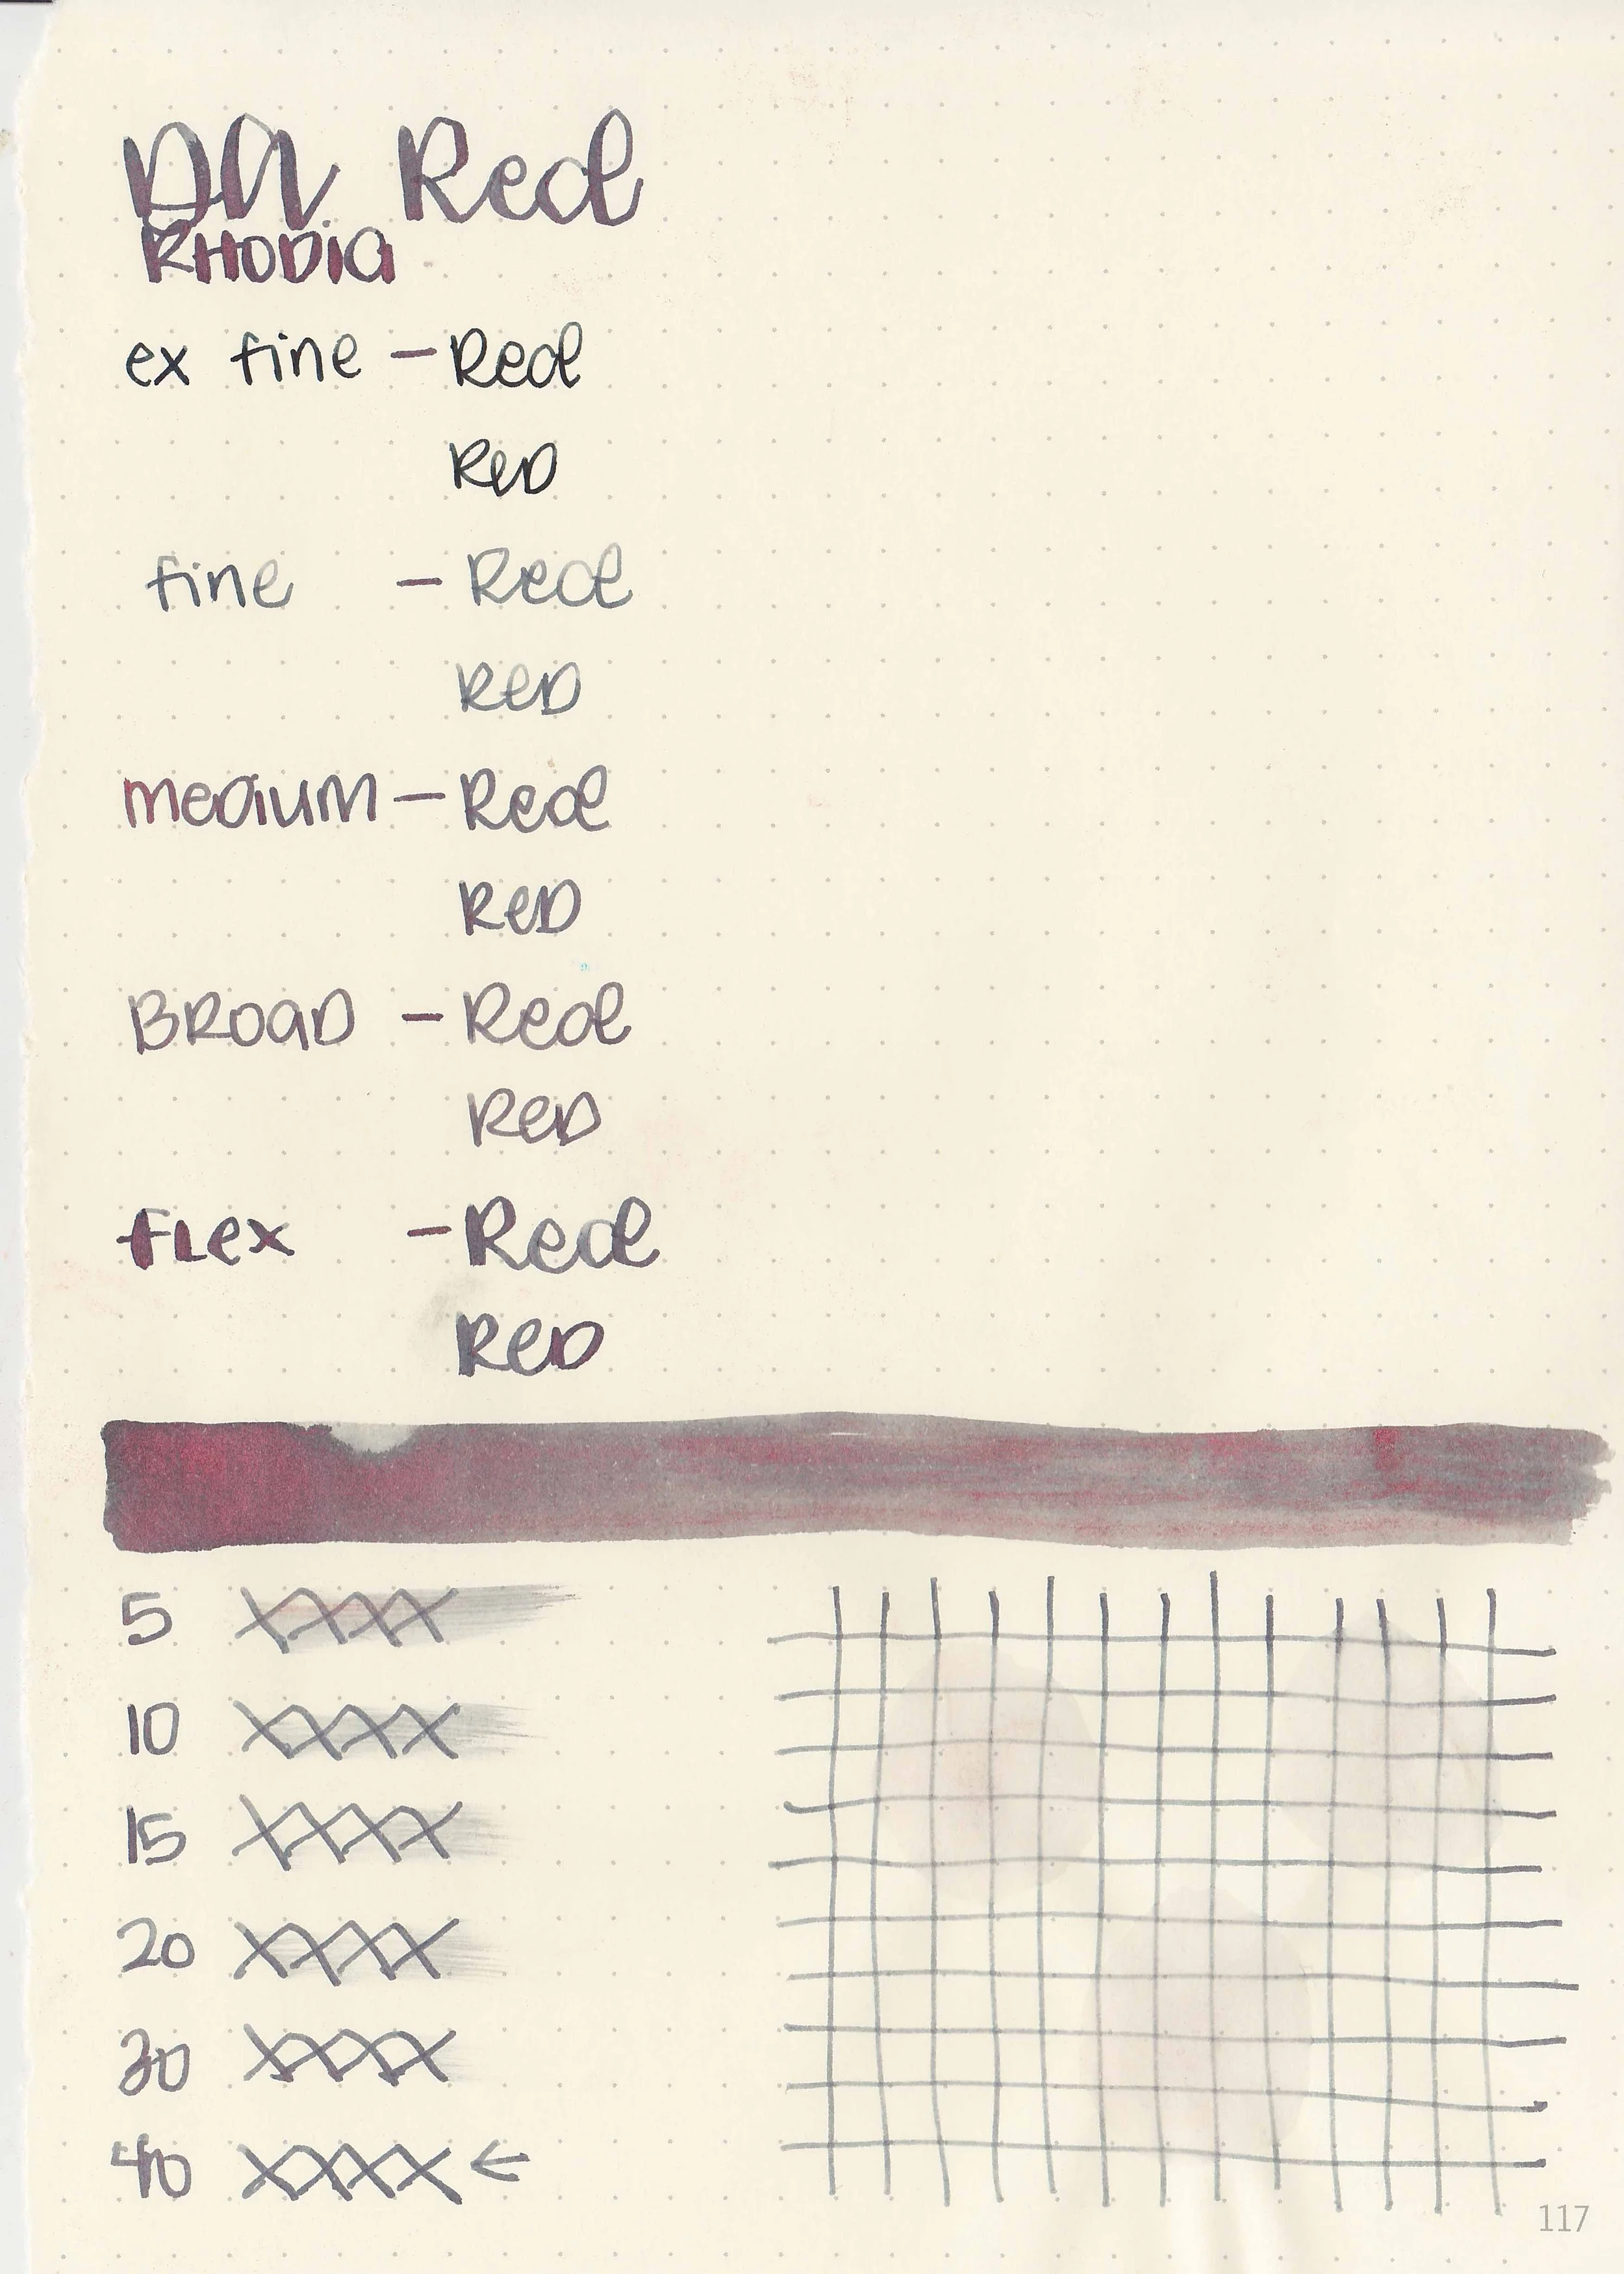 DA Red
RHODIA
ex fine - Red
Red
fine - Red
Red
medium - Red
Red
Broad - Red
Red
Flex - Red
Red
5 XXXX
10 XXXX
15 XXXX
20 XXXX
30 XXXX
40 XXXX ←
117